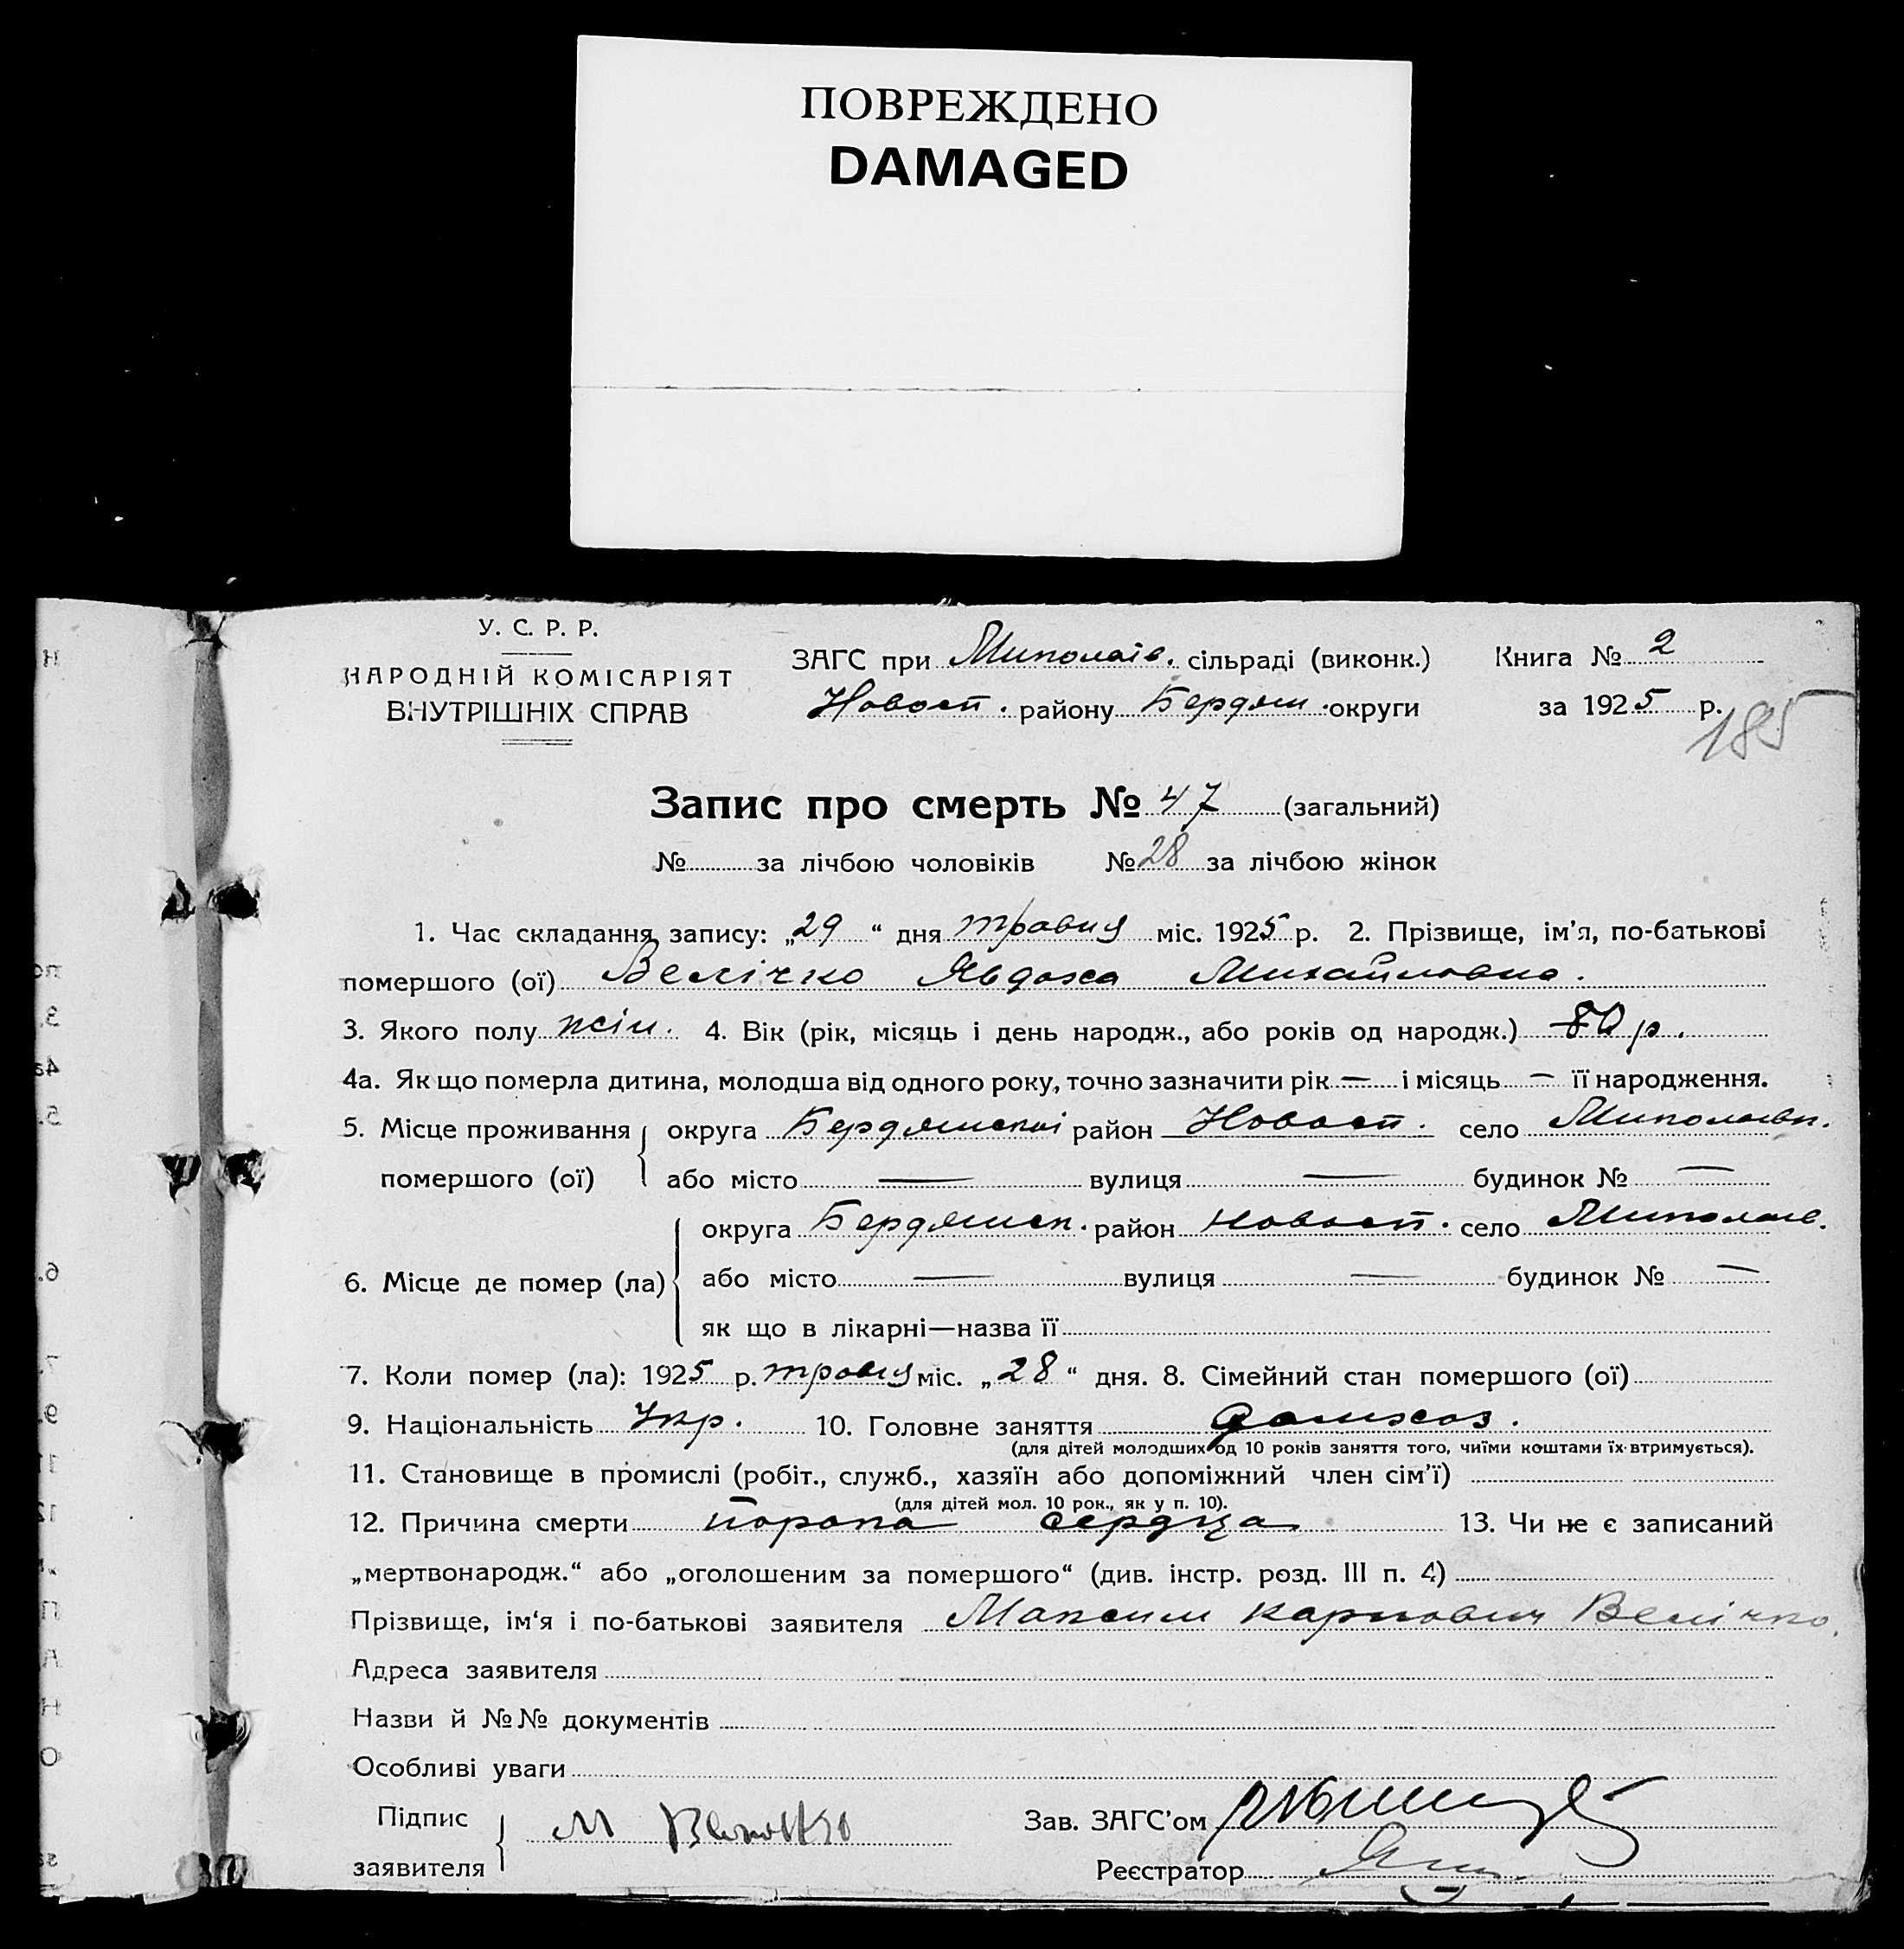 ПОВРЕЖДЕНО
DAMAGED
У. С. Р. Р.
НАРОДНІЙ КОМІСАРІЯТ
ВНУТРІШНІХ СПРАВ
ЗАГС при Миколаїв. сільраді (виконк.)
Новосп. району Бердян. округи
Книга № 2
за 1925 р.
185
Запис про смерть № 47 (загальний)
№ за лічбою чоловіків № 28 за лічбою жінок
1. Час складання запису: „29“ дня травня міс. 1925 р. 2. Прізвище, ім'я, по-батькові
помершого (ої) Велічко Явдоха Михайловна.
3. Якого полу жін. 4. Вік (рік, місяць і день народж., або років од народж.) 80 р.
4а. Як що померла дитина, молодша від одного року, точно зазначити рік — і місяць — її народження.
5. Місце проживання округа Бердянської район Новосп. село Миколаївк.
помершого (ої) або місто — вулиця — будинок № —
округа Бердянськ. район Новосп. село Миколаїв.
6. Місце де помер (ла) або місто — вулиця — будинок № —
як що в лікарні—назва її
7. Коли помер (ла): 1925 р. травня міс. „28“ дня. 8. Сімейний стан помершого (ої)
9. Національність Укр. 10. Головне заняття домхоз.
(для дітей молодших од 10 років заняття того, чиїми коштами їх втримується).
11. Становище в промислі (робіт., служб., хазяїн або допоміжний член сім'ї)
(для дітей мол. 10 рок., як у п. 10).
12. Причина смерти порока сердца 13. Чи не є записаний
„мертвонародж.“ або „оголошеним за помершого“ (див. інстр. розд. III п. 4)
Прізвище, ім'я і по-батькові заявителя Максим Карпович Велічко.
Адреса заявителя
Назви й №№ документів
Особливі уваги
Підпис
заявителя
М Величко
Зав. ЗАГС'ом
Реєстратор